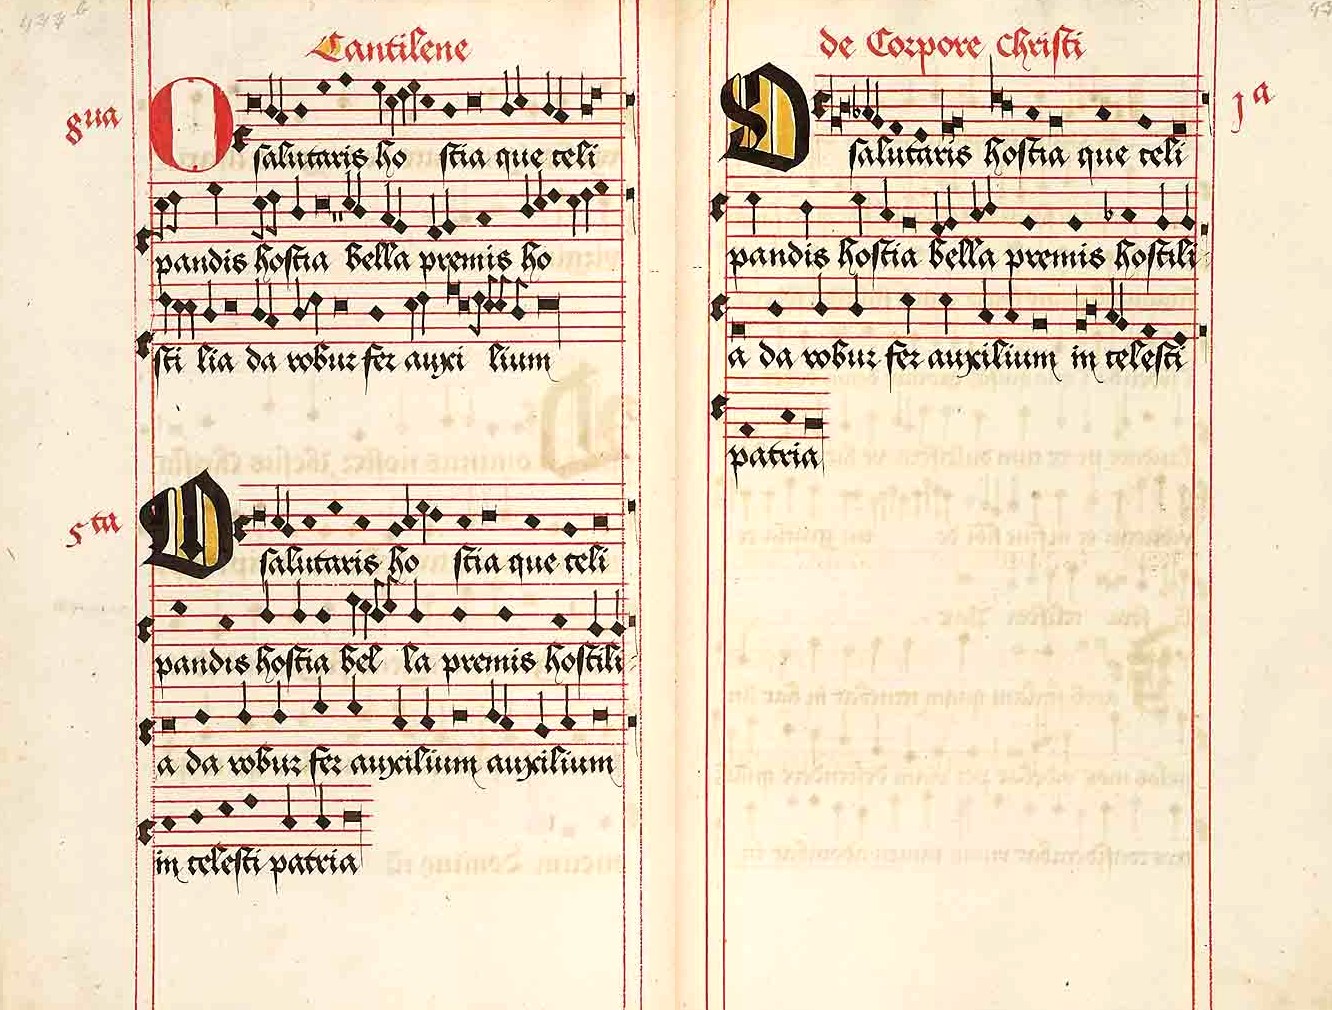 Cantilene
O salutaris ho stia que celi
pandis hostia bella premis ho
sti lia da robur fer auxi lium
5ta
O salutaris ho stia que celi
pandis hostia bel la premis hostili
a da robur fer auxilium auxilium
in celesti patria
de Corpore Christi
1a
O salutaris hostia que celi
pandis hostia bella premis hostili
a da robur fer auxilium in celesti
patria